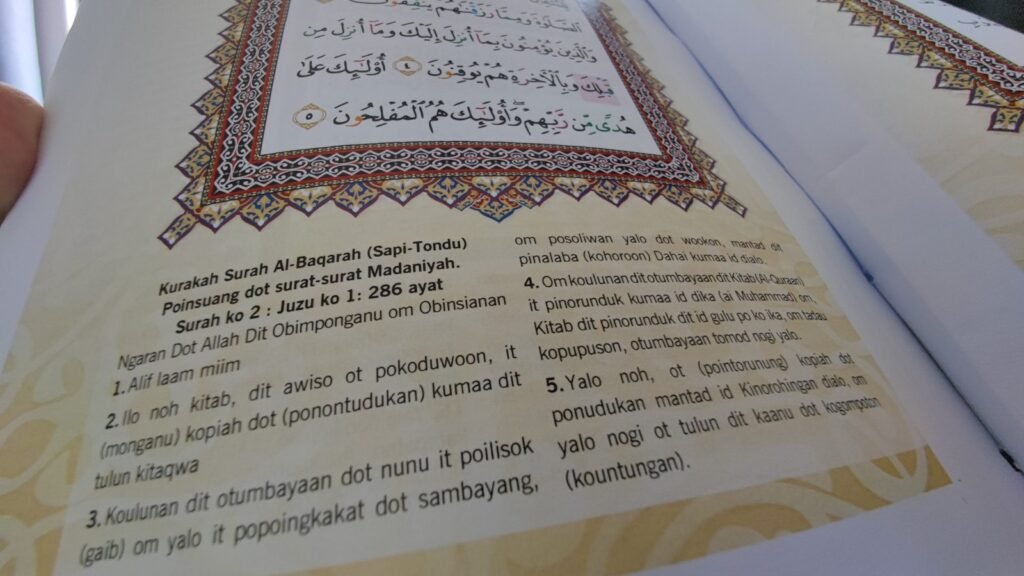 ٱلصَّلَوٰةَ وَمِمَّا رَزَقْنَٰهُمْ يُنفِقُونَ
وَٱلَّذِينَ يُؤْمِنُونَ بِمَآ أُنزِلَ إِلَيْكَ وَمَآ أُنزِلَ مِن
قَبْلِكَ وَبِٱلْءَاخِرَةِ هُمْ يُوقِنُونَ ٤ أُو۟لَٰٓئِكَ عَلَىٰ
هُدًى مِّن رَّبِّهِمْ ۖ وَأُو۟لَٰٓئِكَ هُمُ ٱلْمُفْلِحُونَ ٥
Kurakah Surah Al-Baqarah (Sapi-Tondu)
Poinsuang dot surat-surat Madaniyah.
Surah ko 2 : Juzu ko 1: 286 ayat
Ngaran Dot Allah Dit Obimponganu om Obinsianan
1. Alif laam miim
2. Ilo noh kitab, dit awiso ot pokoduwoon, it
(monganu) kopiah dot (ponontudukan) kumaa dit
tulun kitaqwa
3. Koulunan dit otumbayaan dot nunu it poilisok
(gaib) om yalo it popoingkakat dot sambayang,
om posoliwan yalo dot wookon, mantad dit
pinalaba (kohoroon) Dahai kumaa id dialo.
4. Om koulunan dit otumbayaan dit Kitab (Al-Quraan)
it pinorunduk kumaa id dika (ai Muhammad) om,
Kitab dit pinorunduk dit id gulu po ko ika, om tadau
kopupuson, otumbayaan tomod nogi yalo.
5. Yalo noh, ot (pointorunung) kopiah dot
ponudukan mantad id Kinorohingan dialo, om
yalo nogi ot tulun dit kaanu dot kogompoton
(kountungan).